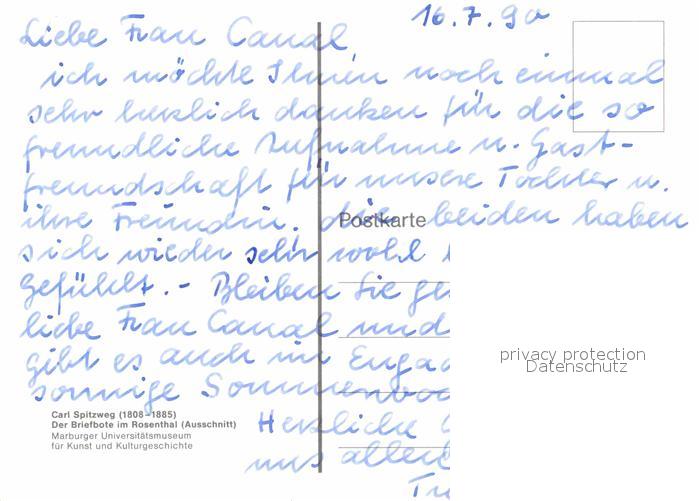 16.7.90
Liebe Frau Canal,
ich möchte Ihnen noch einmal
sehr herzlich danken für die so
freundliche Aufnahme u. Gast-
freundschaft für unsere Tochter u.
ihre Freundin. Die beiden haben
Postkarte
sich wieder sehr wohl
gefühlt. - Bleiben Sie
liebe Frau Canal und
gibt es auch im
sonnige
privacy protection
Datenschutz
Carl Spitzweg (1808–1885)
Der Briefbote im Rosenthal (Ausschnitt)
Marburger Universitätsmuseum
für Kunst und Kulturgeschichte
Herzliche
uns allen